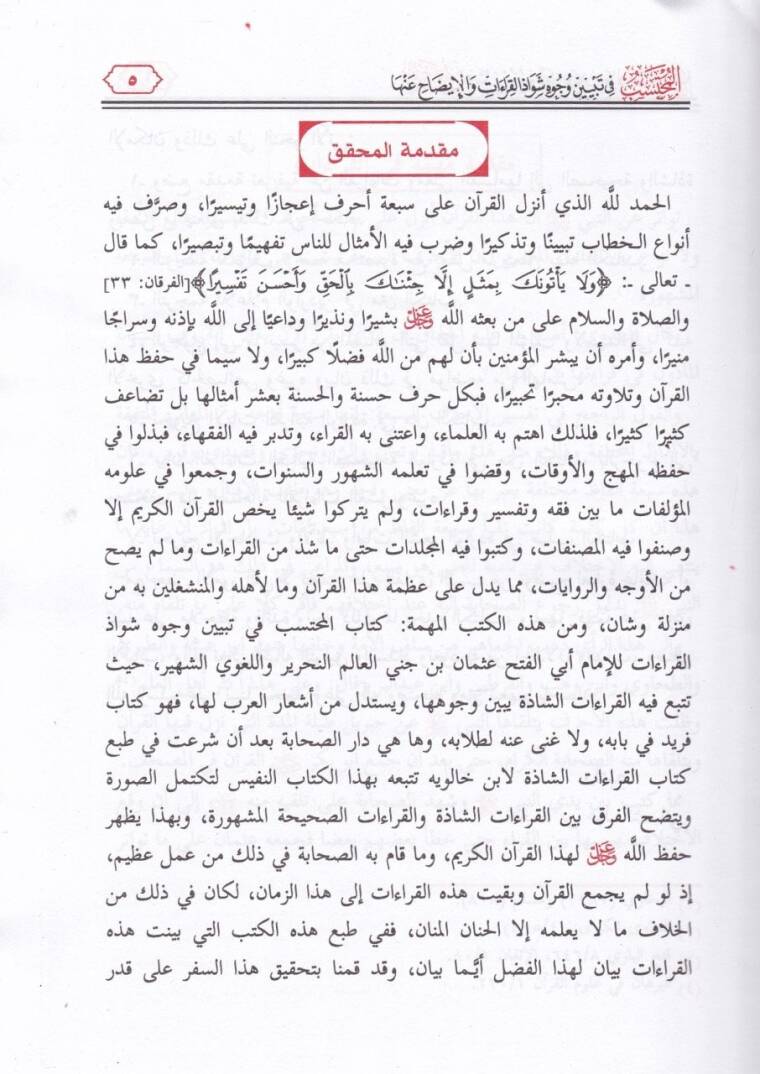 المحتسب في تبيين وجوه شواذ القراءات والإيضاح عنها
٥
مقدمة المحقق
الحمد للَّه الذي أنزل القرآن على سبعة أحرف إعجازًا وتيسيرًا، وصرَّف فيه
أنواع الخطاب تبيينًا وتذكيرًا وضرب فيه الأمثال للناس تفهيمًا وتبصيرًا، كما قال
ـ تعالى ـ: ﴿وَلَا يَأْتُونَكَ بِمَثَلٍ إِلَّا جِئْنَٰكَ بِٱلْحَقِّ وَأَحْسَنَ تَفْسِيرًا﴾[الفرقان: ٣٣]
والصلاة والسلام على من بعثه اللَّه عز وجل بشيرًا ونذيرًا وداعيًا إلى اللَّه بإذنه وسراجًا
منيرًا، وأمره أن يبشر المؤمنين بأن لهم من اللَّه فضلًا كبيرًا، ولا سيما في حفظ هذا
القرآن وتلاوته محبرًا تحبيرًا، فبكل حرف حسنة والحسنة بعشر أمثالها بل تضاعف
كثيرًا كثيرًا، فلذلك اهتم به العلماء، واعتنى به القراء، وتدبر فيه الفقهاء، فبذلوا في
حفظه المهج والأوقات، وقضوا في تعلمه الشهور والسنوات، وجمعوا في علومه
المؤلفات ما بين فقه وتفسير وقراءات، ولم يتركوا شيئا يخص القرآن الكريم إلا
وصنفوا فيه المصنفات، وكتبوا فيه المجلدات حتى ما شذ من القراءات وما لم يصح
من الأوجه والروايات، مما يدل على عظمة هذا القرآن وما لأهله والمنشغلين به من
منزلة وشان، ومن هذه الكتب المهمة: كتاب المحتسب في تبيين وجوه شواذ
القراءات للإمام أبي الفتح عثمان بن جني العالم النحرير واللغوي الشهير، حيث
تتبع فيه القراءات الشاذة يبين وجوهها، ويستدل من أشعار العرب لها، فهو كتاب
فريد في بابه، ولا غنى عنه لطلابه، وها هي دار الصحابة بعد أن شرعت في طبع
كتاب القراءات الشاذة لابن خالويه تتبعه بهذا الكتاب النفيس لتكتمل الصورة
ويتضح الفرق بين القراءات الشاذة والقراءات الصحيحة المشهورة، وبهذا يظهر
حفظ اللَّه عز وجل لهذا القرآن الكريم، وما قام به الصحابة في ذلك من عمل عظيم،
إذ لو لم يجمع القرآن وبقيت هذه القراءات إلى هذا الزمان، لكان في ذلك من
الخلاف ما لا يعلمه إلا الحنان المنان، ففي طبع هذه الكتب التي بينت هذه
القراءات بيان لهذا الفضل أيَّما بيان، وقد قمنا بتحقيق هذا السفر على قدر